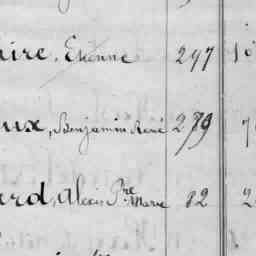 aire, Etienne 297
ux, Benjamin René 279
ard, Alexis Pre Marie 82